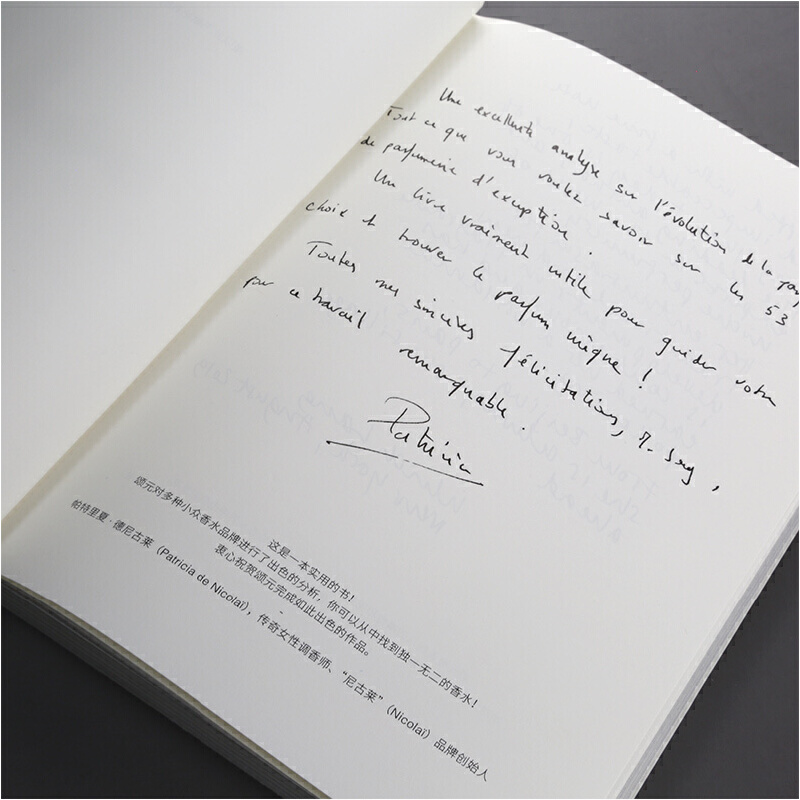 Une excellente analyse sur l'évolution de la
Tout ce que vous voulez savoir sur les 53
de parfumerie d'exception.
Un livre vraiment utile pour guider votre
choix et trouver le parfum unique !
Toutes mes sincères félicitations,
pour ce travail remarquable.
Patricia
这是一本实用的书！
颂元对多种小众香水品牌进行了出色的分析，你可以从中找到独一无二的香水！
衷心祝贺颂元完成如此出色的作品。
-
帕特里夏·德尼古莱（Patricia de Nicolaï），传奇女性调香师、“尼古莱”（Nicolaï）品牌创始人